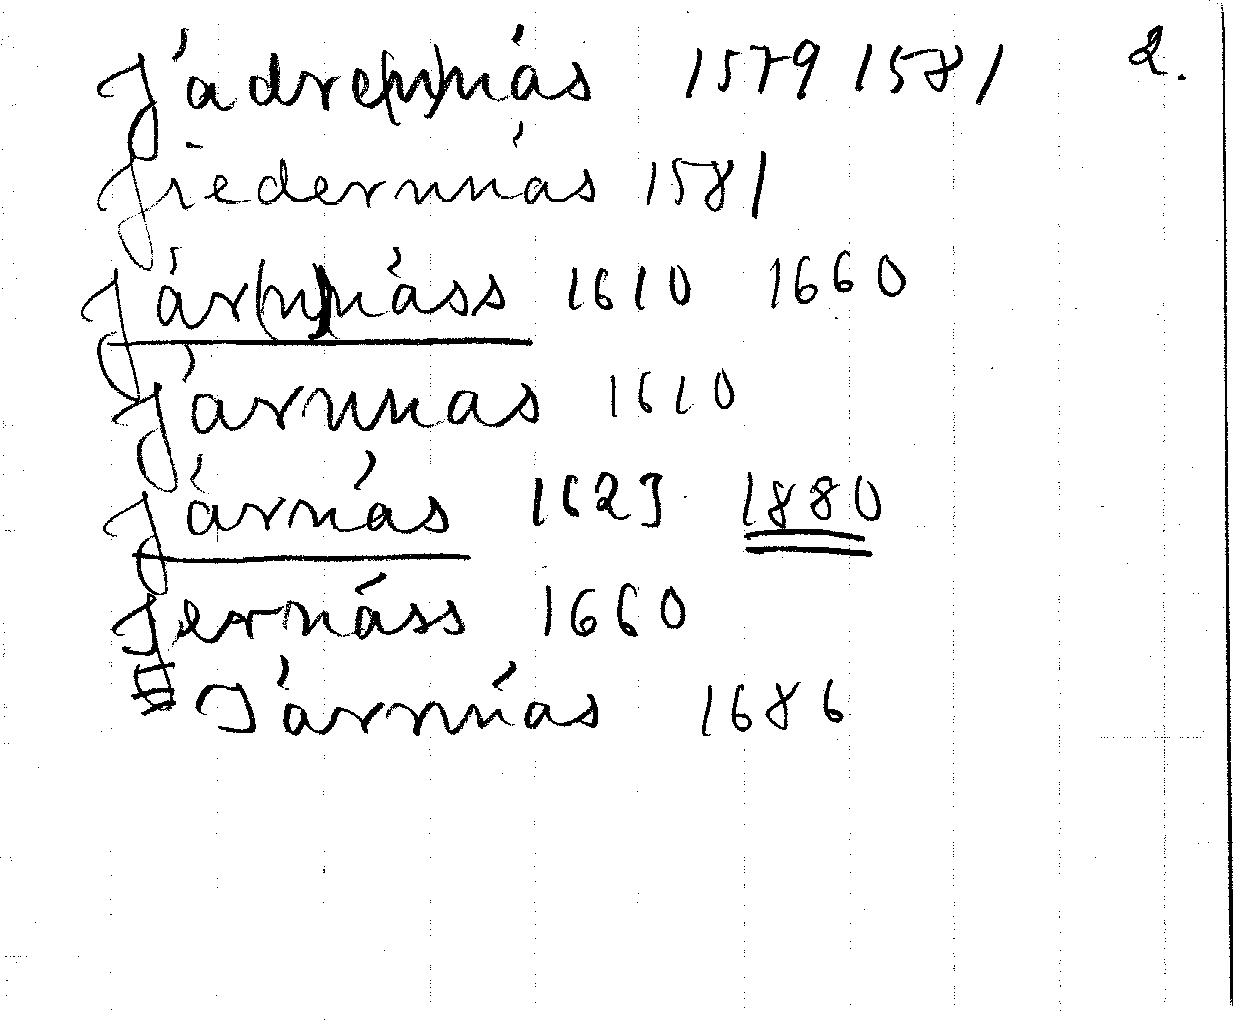 Jádre(n)nás 1579 1581 2.
Jiedernnäs 1581
Jár(n)náss 1610 1660
Järnnas 1610
Járnás 1623 1880
Jernáss 1660
Járnnás 1686